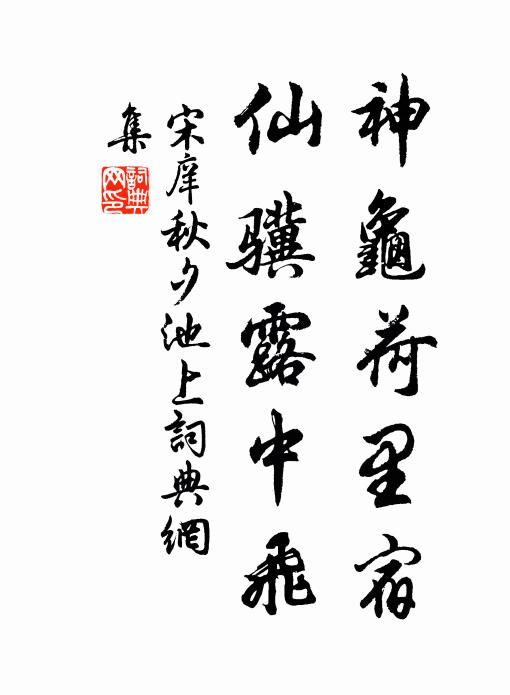 神龜荷里宿
仙驥露中飛
宋庠秋夕池上詞典網
集
詞典
网印